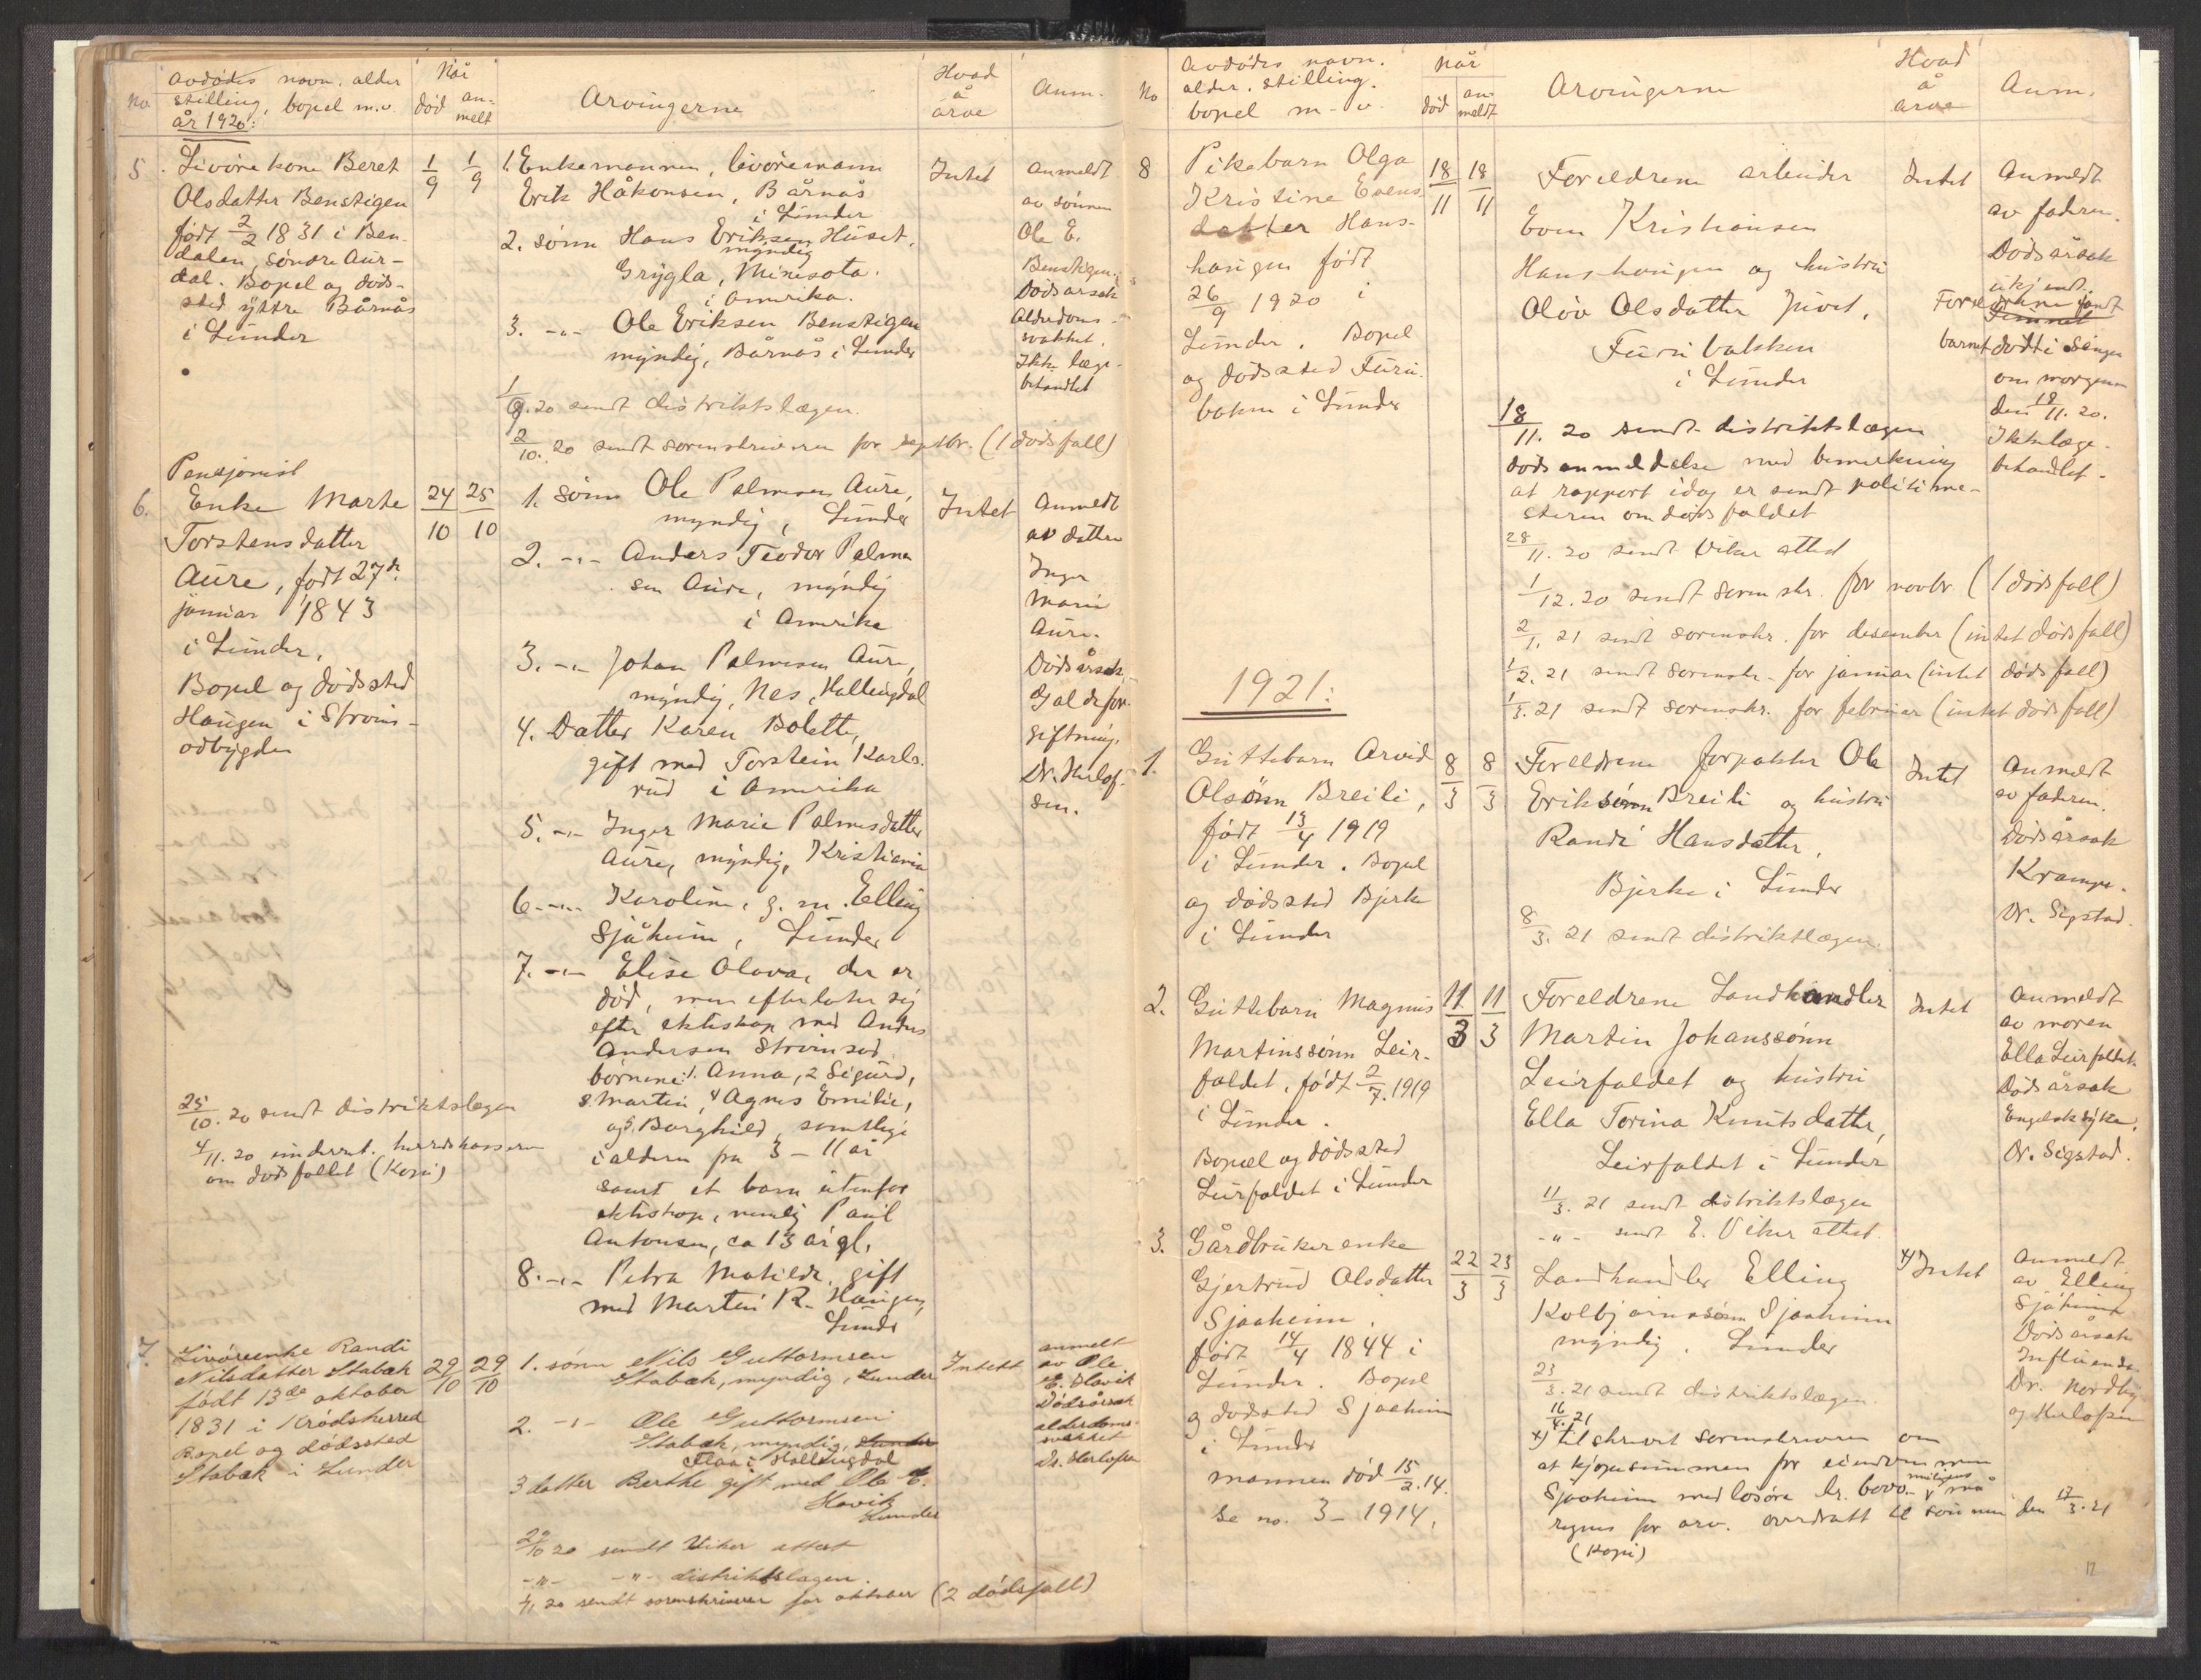 No
avdødes navn, alder
stilling, bopel m.v.
år 1920:
Når
død
an-
melt
Arvingerne
Hvad
å
arve
Anm.
5. Livøre kone Beret
Olsdatter Benstigen
født 2/2 1831 i Ben-
dalen, søndre Aur-
dal. Bopel og døds-
sted yttre Bårnås
i Lunder
1/9
1/9
1. Enkemannen, livøremann
Erik Håkonsen, Bårnås
i Lunder
2. sønn Hans Eriksen Huset,
myndig
Grygla, Minesota.
i Amerika.
3. -"- Ole Eriksen Benstigen
myndig, Bårnås i Lunder
1/9.20 sendt distriktslægen.
2/10.20 sendt sorenskriveren for septbr. (1 dødsfall)
Intet
Anmeldt
av sønnen
Ole E.
Benstigen.
Dødsårsak
Alderdoms-
svakhet.
Ikke læge-
behandlet
Pensjonist
6. Enke Marte
Torstensdatter
Aure, født 27de
januar 1843
i Lunder,
Bopel og dødssted
Haugen i Strøms-
odbygden
24/10
25/10
1. sønn Ole Palmesen Aure,
myndig, Lunder
2. -"- Anders Teodor Palme
sen Aure, myndig
i Amerika
3. -"- Johan Palmesen Aure,
myndig, Nes, Hallingdal
4. Datter Karen Bolette,
gift med Torstein Karls-
rud i Amerika
5. -"- Inger Marie Palmesdatter
Aure, myndig, Kristiania
6. -"- Karoline, g. m. Elling
Sjåheim, Lunder
7. -"- Elise Olava, der er
død, men efterlater sig
efter ekteskap med Anders
Andersen Strømsod
børnene: 1. Anna, 2 Sigurd,
3. Martin, 4 Agnes Emilie,
og 5. Borghild, samtlige
i alderen fra 3 - 11 år
samt et barn utenfor
ekteskap, nemlig Paul
Antonsen, ca 13 år gl.
8. -"- Petra Matilde, gift
med Martin R. Haugen,
Lunder
Intet
Anmeldt
av datter
Inger
Marie
Aure.
Dødsårsak
Galdefor-
giftning.
Dr. Herlof-
sen.
25/10.20 sendt distriktslægen
4/11.20 underret. herredskasseren
om dødsfallet (Kopi)
7. Livøreenke Randi
Nilsdatter Stabæk
født 13de oktober
1831 i Krødsherred
Bopel og dødssted
Stabæk i Lunder
29/10
29/10
1. sønn Nils Guttormsen
Stabæk, myndig, Lunder
2. -"- Ole Guttormsen
Stabæk, myndig, Lunder
Flaa i Hallingdal
3 datter Berthe gift med Ole E.
Høvik
Lunder
29/10 20 sendt Viker attest
-"- -"- distriktslægen.
1/11 20 sendt sorenskriveren for oktober (2 dødsfall)
Intett
anmelt
av Ole
E. Høvik
Dødsårsak
alderdoms-
svakhet
Dr. Herlofsen
No
avdødes navn.
alder, stilling.
bopel m-v.
Når
død
an-
meldt
Arvingerne
Hvad
å
arve
Anm.
8 Pikebarn Olga
Kristine Evens
datter Hans-
haugen født
26/9 1920 i
Lunder. Bopel
og dødssted Furu-
bakken i Lunder
18/11
18/11
Foreldrene arbeider
Even Kristiansen
Hanshaugen og hustru
Oløv Olsdatter Juvet,
Furubakken
i Lunder
18/11.20 sendt distriktslægen
dødsanmeldelse med bemerkning
at rapport idag er sendt politime-
steren om dødsfaldet
28/11.20 sendt Viker attest
1/12.20 sendt sorenskr. for novbr (1 dødsfall)
2/1.21 sendt sorenskr. for desember (intet dødsfall)
1/2.21 sendt sorenskr. for januar (intet dødsfall)
1/3.21 sendt sorenskr. for februar (intet dødsfall)
Intet
Anmeldt
av faderen.
Dødsårsak
ukjendt.
Foreldrene fandt
barnet dødt i sengen
om morgenen
den 18/11.20.
Ikke læge-
behandlet.
1921:
1. Guttebarn Arvid
Olsønn Breili,
født 13/4 1919
i Lunder. Bopel
og dødssted Bjerke
i Lunder
8/3
8/3
Foreldrene forpakter Ole
Eriksønn Breili og hustru
Randi Hansdatter,
Bjerke i Lunder
8/3.21 sendt distriktslægen.
Intet
Anmeldt
av faderen.
Dødsårsak
Krampe.
Dr. Sigstad.
2. Guttebarn Magnus
Martinssønn Leir-
faldet, født 2/7.1919
i Lunder.
Bopæl og dødssted
Leirfaldet i Lunder
11/3
11/3
Foreldrene Landhandler
Martin Johanssønn
Leirfaldet og hustru
Ella Torina Knutsdatter,
Leirfaldet i Lunder
11/3.21 sendt distriktslægen
-"- sendt E. Viker attest.
Intet
Anmeldt
av moren
Ella Leirfaldet.
Dødsårsak
Engelsk syke.
Dr. Sigstad.
3. Gårdbrukerenke
Gjertrud Olsdatter
Sjaaheim,
født 14/4 1844 i
Lunder. Bopel
og dødssted Sjaaheim
i Lunder
mannen død 15/2.14.
Se no. 3 - 1914.
22/3
23/3
Landhandler Elling
Kolbjørnssønn Sjaaheim
myndig, Lunder
23/3.21 sendt distriktslægen.
16/4.21
x) tilskrevet sorenskriveren om
at kjøpesummen for eiendommen
Sjaaheim med løsøre kr. 6000.- muligens må
regnes for arv. overdratt til sønnen den 17/3.21
(Kopi)
x) Intet
Anmeldt
av Elling
Sjåheim
Dødsårsak
Influenda.
Dr. Nordby
og Herlofsen
12